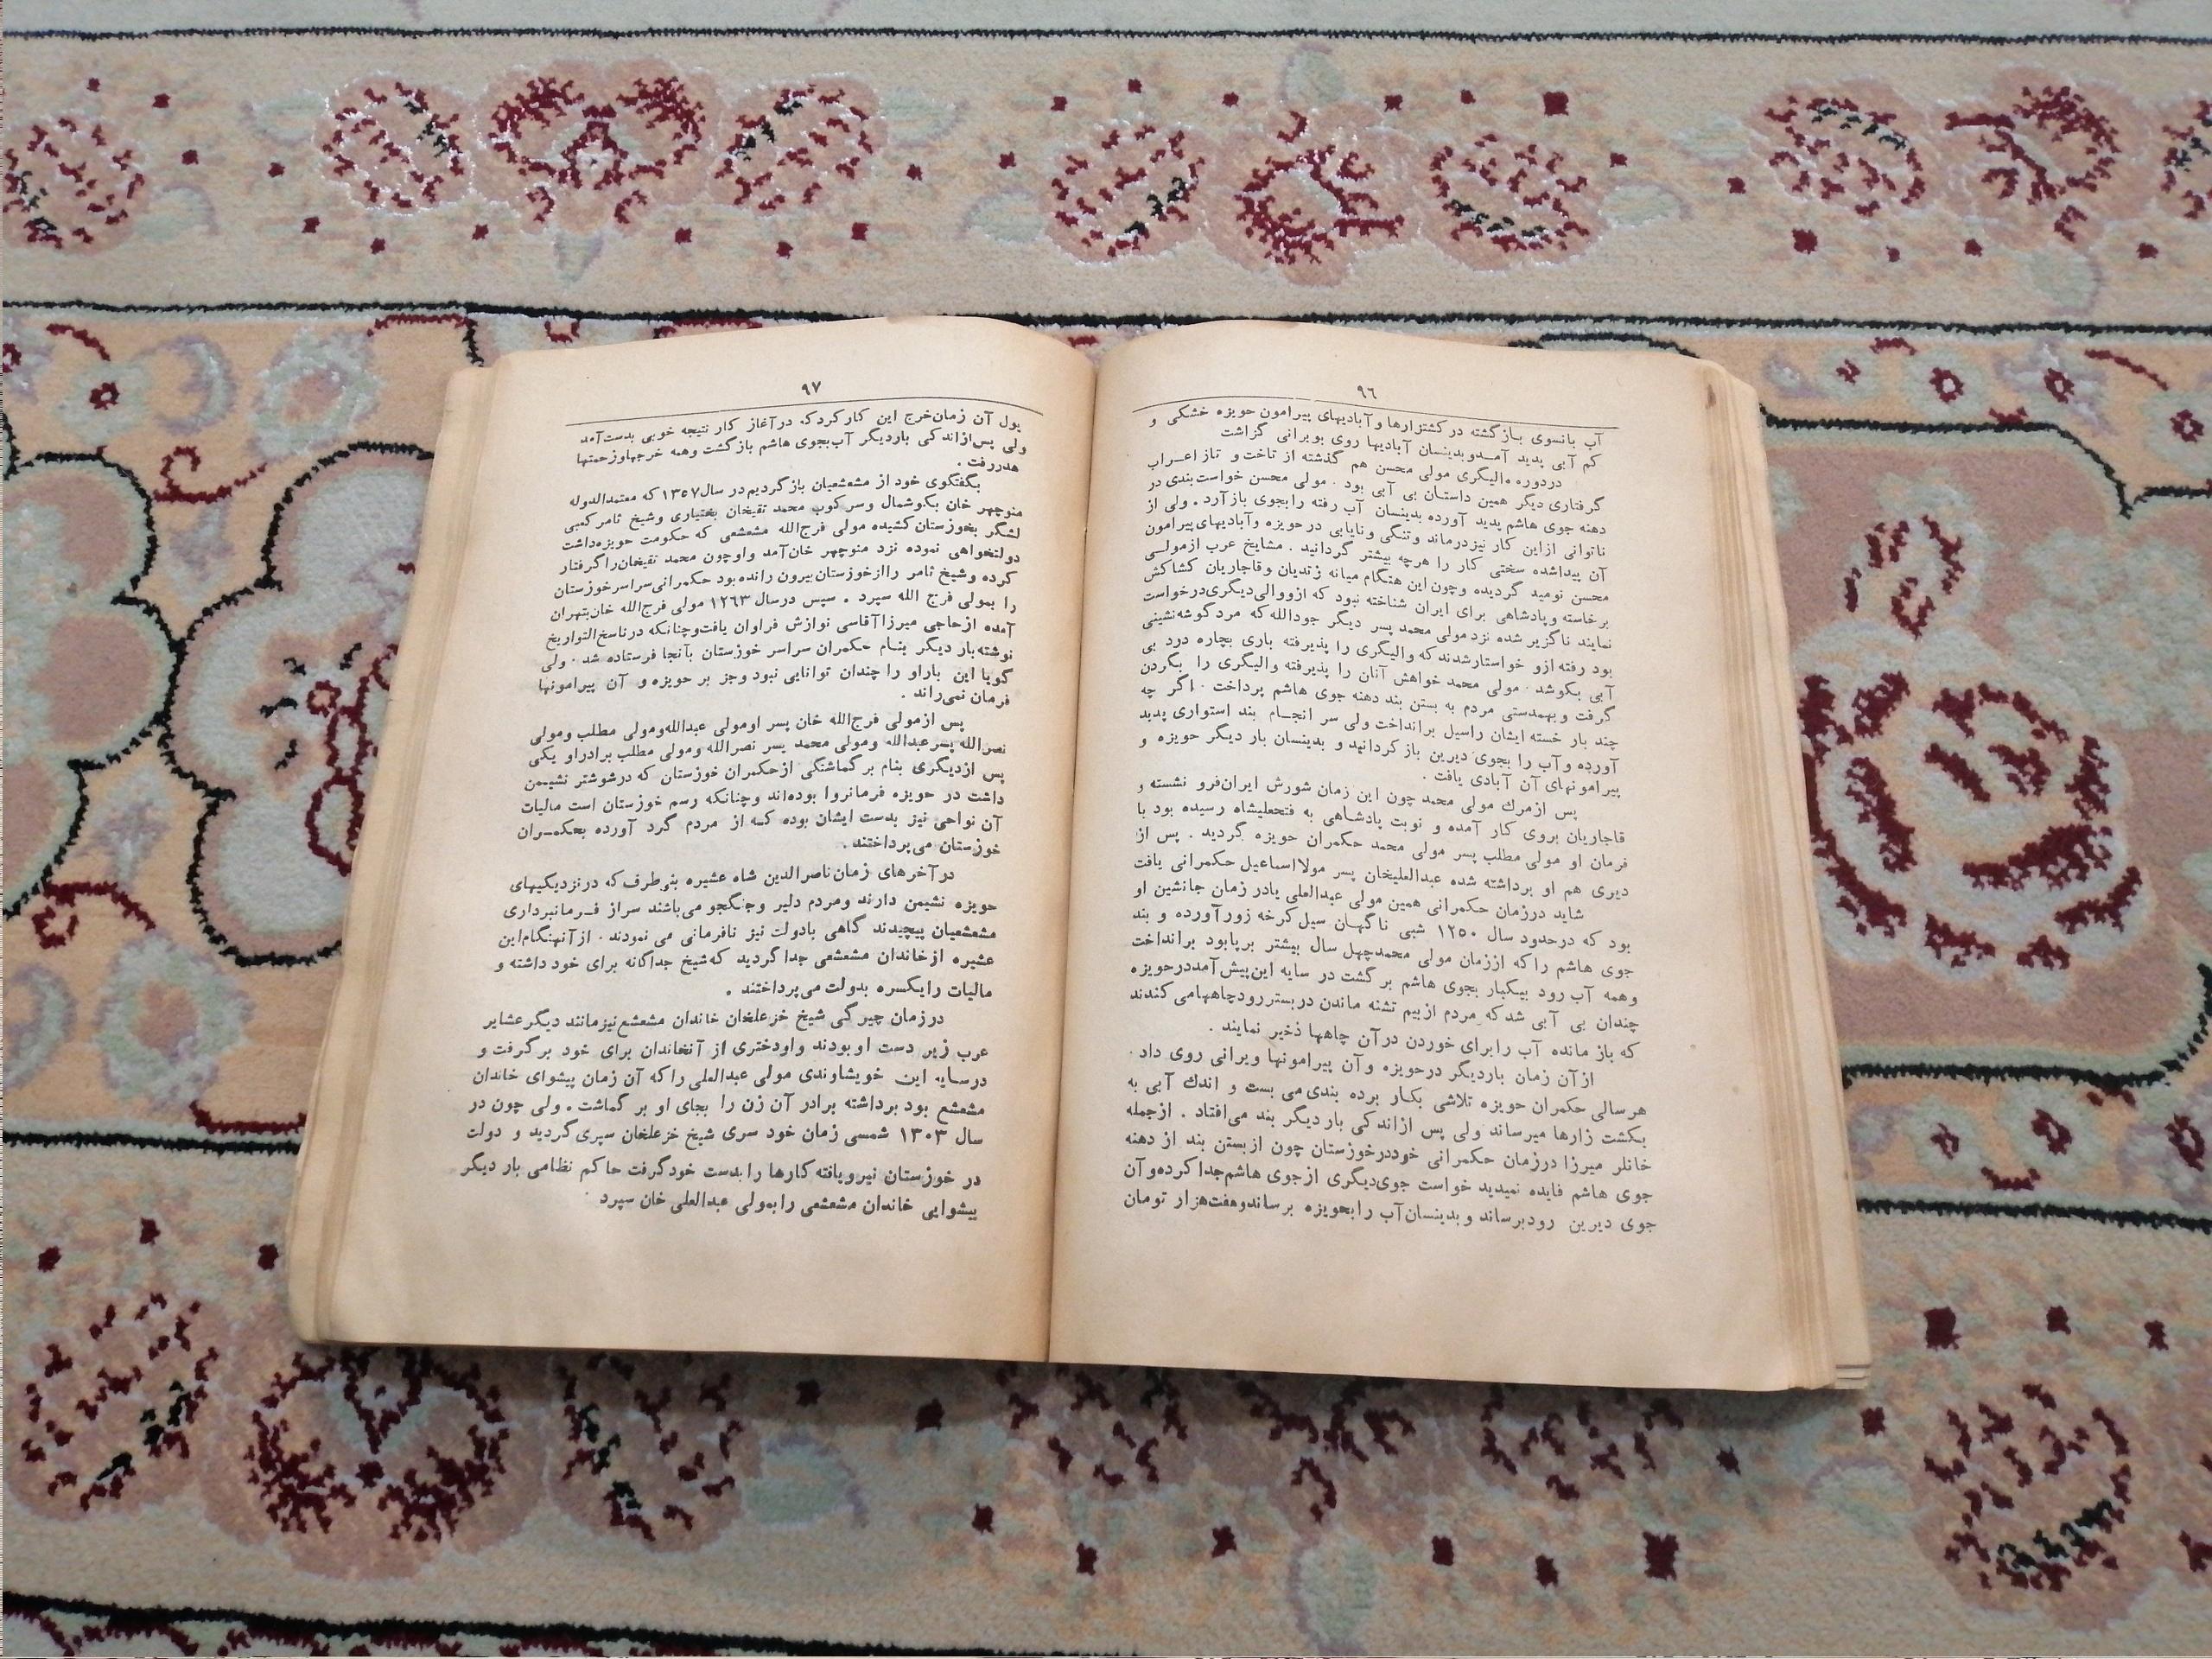 ٩٦
آب بانسوی بازگشته در کشتزارها و آبادیهای پیرامون حویزه خشکی و
کم آبی پدید آمد و بدینسان آبادیها روی بویرانی گزاشت
در دوره والیگری مولی محسن هم گذشته از تاخت و تاز اعراب
گرفتاری دیگر همین داستان بی آبی بود . مولی محسن خواست بندی در
دهنه جوی هاشم پدید آورده بدینسان آب رفته را بجوی باز آرد . ولی از
ناتوانی از این کار نیز درماند و تنگی و نایابی در حویزه و آبادیهای پیرامون
آن پیدا شده سختی کار را هرچه بیشتر گردانید . مشایخ عرب از مولی
محسن نومید گردیده و چون این هنگام میانه زندیان و قاجاریان کشاکش
برخاسته و پادشاهی برای ایران شناخته نبود که ازو والی دیگری درخواست
نمایند ناگزیر شده نزد مولی محمد پسر دیگر جودالله که مرد گوشه نشینی
بود رفته ازو خواستار شدند که والیگری را پذیرفته باری بچاره درد بی
آبی بکوشد . مولی محمد خواهش آنان را پذیرفته والیگری را بگردن
گرفت و بهمدستی مردم به بستن بند دهنه جوی هاشم پرداخت . اگر چه
چند بار خسته ایشان را سیل برانداخت ولی سر انجام بند استواری پدید
آورده و آب را بجوی دیرین باز گردانید و بدینسان بار دیگر حویزه و
پیرامونهای آن آبادی یافت .
پس از مرك مولی محمد چون این زمان شورش ایران فرو نشسته و
قاجاریان بروی کار آمده و نوبت پادشاهی به فتحعلیشاه رسیده بود با
فرمان او مولی مطلب پسر مولی محمد حکمران حویزه گردید . پس از
دیری هم او برداشته شده عبدالعلیخان پسر مولا اسماعیل حکمرانی یافت
شاید در زمان حکمرانی همین مولی عبدالعلی یا در زمان جانشین او
بود که در حدود سال ۱۲۵۰ شبی ناگهان سیل کرخه زور آورده و بند
جوی هاشم را که از زمان مولی محمد چهل سال بیشتر برپا بود برانداخت
و همه آب رود بیکبار بجوی هاشم برگشت در سایه این پیش آمد در حویزه
چندان بی آبی شد که مردم از بیم تشنه ماندن در بستر رود چاهها می کندند
که باز مانده آب را برای خوردن در آن چاهها ذخیر نمایند .
از آن زمان بار دیگر در حویزه و آن پیرامونها ویرانی روی داد .
هر سالی حکمران حویزه تلاشی بکار برده بندی می بست و اندك آبی به
بکشت زارها میرساند ولی پس از اندکی بار دیگر بند می افتاد . از جمله
خانلر میرزا در زمان حکمرانی خود در خوزستان چون از بستن بند از دهنه
جوی هاشم فایده نمیدید خواست جوی دیگری از جوی هاشم جدا کرده و آن
جوی دیرین رود برساند و بدینسان آب را بحویزه برساند و هفت هزار تومان
٩٧
پول آن زمان خرج این کار کرد که در آغاز کار نتیجه خوبی بدست آمد
ولی پس از اندکی بار دیگر آب بجوی هاشم بازگشت و همه خرجها و زحمتها
هدر رفت .
بگفتگوی خود از مشعشعیان باز گردیم در سال ۱۳۵۷ که معتمدالدوله
منوچهر خان بگوشمال و سرکوب محمد تقیخان بختیاری و شیخ ثامر کعبی
لشگر بخوزستان کشیده مولی فرج الله مشعشعی که حکومت حویزه داشت
دولتخواهی نموده نزد منوچهر خان آمد و او چون محمد تقیخان را گرفتار
کرده و شیخ ثامر را از خوزستان بیرون رانده بود حکمرانی سراسر خوزستان
را بمولی فرج الله سپرد . سپس در سال ۱۲۶۳ مولی فرج الله خان بتهران
آمده از حاجی میرزا آقاسی نوازش فراوان یافت و چنانکه در ناسخ التواریخ
نوشته بار دیگر بنام حکمران سراسر خوزستان بآنجا فرستاده شد . ولی
گویا این بار او را چندان توانایی نبود و جز بر حویزه و آن پیرامونها
فرمان نمی راند .
پس از مولی فرج الله خان پسر او مولی عبدالله و مولی مطلب و مولی
نصرالله پسر عبدالله و مولی محمد پسر نصرالله و مولی مطلب برادر او یکی
پس از دیگری بنام برگماشتگی از حکمران خوزستان که در شوشتر نشیمن
داشت در حویزه فرمانروا بوده اند و چنانکه رسم خوزستان است مالیات
آن نواحی نیز بدست ایشان بوده که از مردم گرد آورده بحکمران
خوزستان می پرداختند .
در آخرهای زمان ناصرالدین شاه عشیره بنی طرف که در نزدیکیهای
حویزه نشیمن دارند و مردم دلیر و جنگجو می باشند سر از فرمانبرداری
مشعشعیان پیچیدند گاهی با دولت نیز نافرمانی می نمودند . از آنهنگام این
عشیره از خاندان مشعشعی جدا گردید که شیخ جداگانه برای خود داشته و
مالیات را یکسره بدولت می پرداختند .
در زمان چیرگی شیخ خزعلخان خاندان مشعشع نیز مانند دیگر عشایر
عرب زیر دست او بودند و او دختری از آنخاندان برای خود برگرفت و
در سایه این خویشاوندی مولی عبدالعلی را که آن زمان پیشوای خاندان
مشعشع بود برداشته برادر آن زن را بجای او بر گماشت . ولی چون در
سال ۱۳۰۳ شمسی زمان خود سری شیخ خزعلخان سپری گردید و دولت
در خوزستان نیرو یافته کارها را بدست خود گرفت حاکم نظامی بار دیگر
پیشوایی خاندان مشعشعی را بمولی عبدالعلی خان سپرد